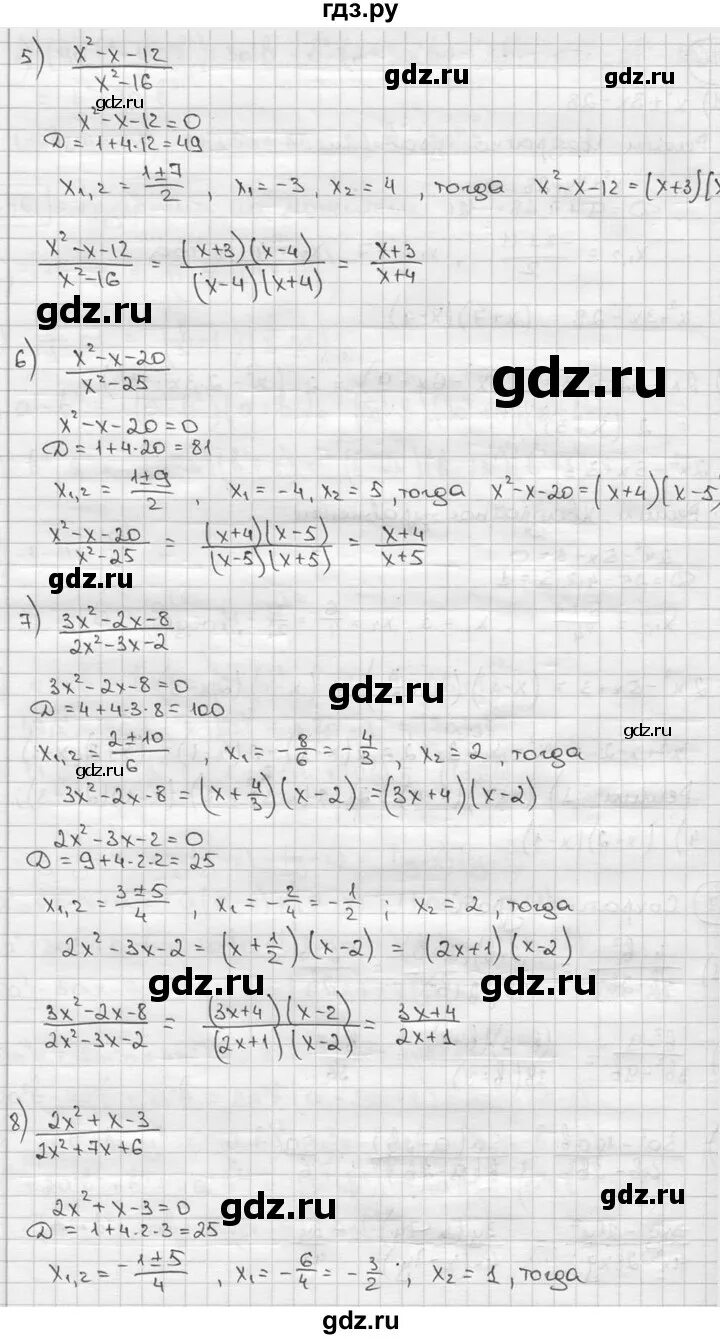 гдз.ру
5) (x²-x-12)/(x²-16)
gdz.ru
gdz.ru
gdz.ru
x²-x-12=0
D = 1+4·12=49
x₁,₂ = (1±7)/2 , x₁=-3, x₂=4, тогда x²-x-12=(x+3)(x
(x²-x-12)/(x²-16) = ((x+3)(x-4))/((x-4)(x+4)) = (x+3)/(x+4)
gdz.ru
6) (x²-x-20)/(x²-25)
gdz.ru
x²-x-20=0
D=1+4·20=81
x₁,₂ = (1±9)/2 , x₁=-4, x₂=5, тогда x²-x-20=(x+4)(x-5)
(x²-x-20)/(x²-25) = ((x+4)(x-5))/((x-5)(x+5)) = (x+4)/(x+5)
gdz.ru
7) (3x²-2x-8)/(2x²-3x-2)
3x²-2x-8=0
gdz.ru
D=4+4·3·8=100
gdz.ru
x₁,₂ = (2±10)/6 , x₁=-8/6=-4/3, x₂=2, тогда
gdz.ru
3x²-2x-8=(x+4/3)(x-2)=(3x+4)(x-2)
2x²-3x-2=0
D=9+4·2·2=25
x₁,₂ = (3±5)/4 , x₁=-2/4=-1/2; x₂=2, тогда
2x²-3x-2=(x+1/2)(x-2)=(2x+1)(x-2)
gdz.ru
gdz.ru
(3x²-2x-8)/(2x²-3x-2) = ((3x+4)(x-2))/((2x+1)(x-2)) = (3x+4)/(2x+1)
8) (2x²+x-3)/(2x²+7x+6)
gdz.ru
2x²+x-3=0
gdz.ru
D=1+4·2·3=25
x₁,₂ = (-1±5)/4 , x₁=-6/4=-3/2; x₂=1, тогда
gdz.ru